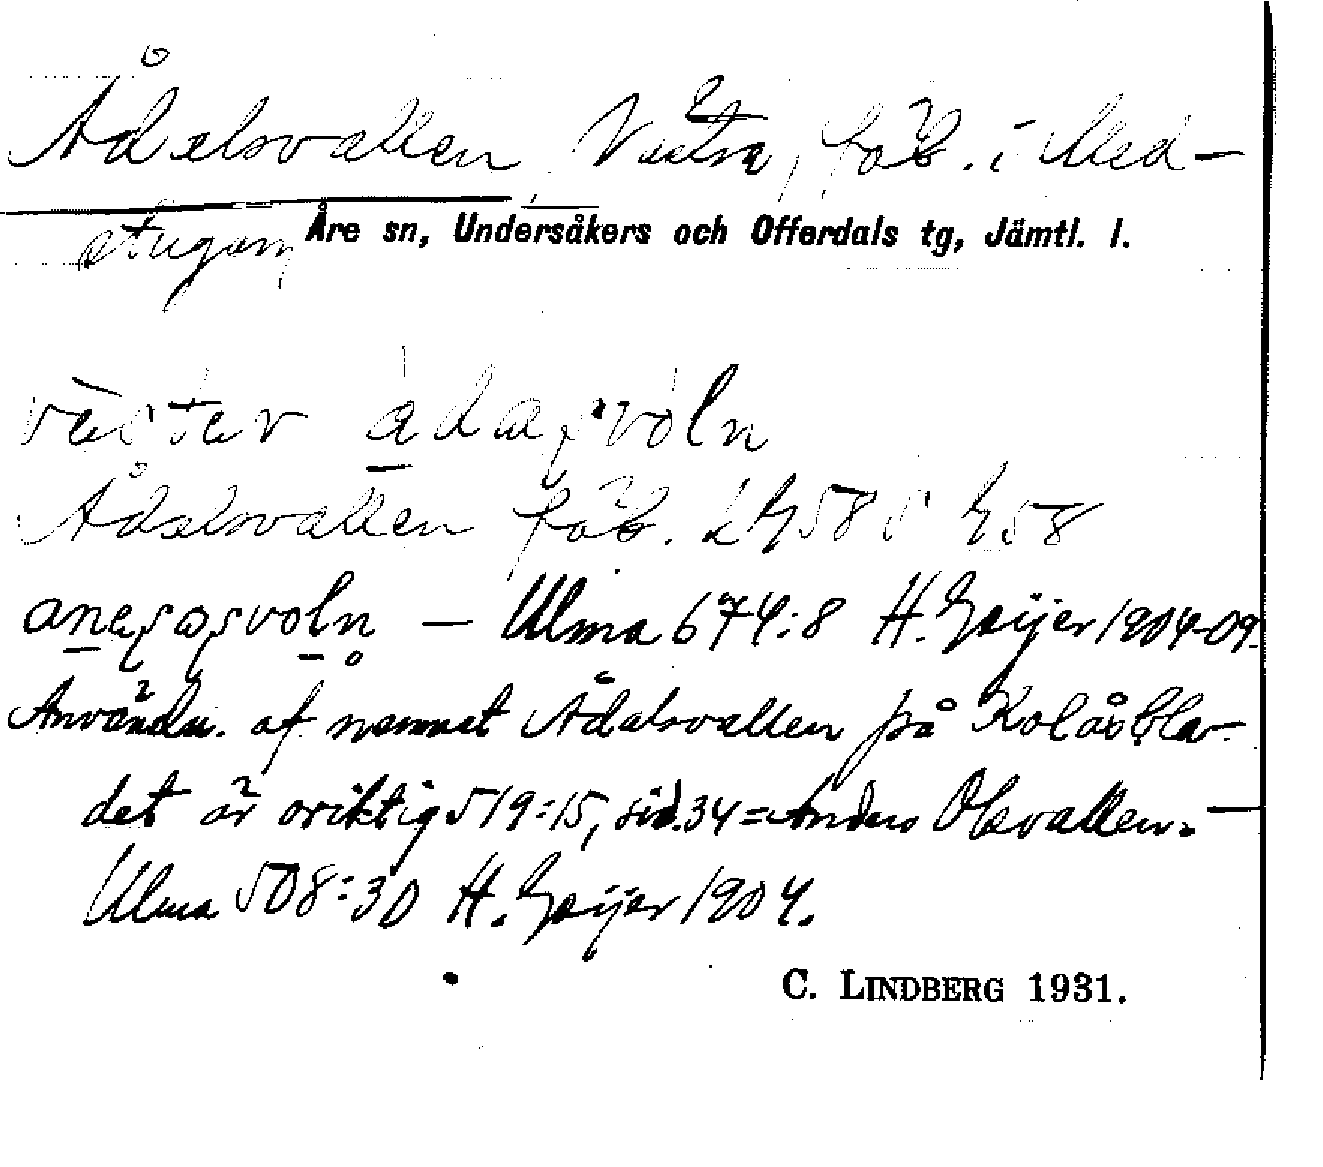 Ådalsvallen, Västra, fäb. i Med-
stugan, Åre sn, Undersåkers och Offerdals tg, Jämtl. l.
västər
Ådalsvallen fäb.
— Ulma 674:8 H. Geijer 1904-09.
Användn. af namnet Ådalsvallen på Kolåsbla-
det är oriktig 519:15, sid. 34 = Anders Olsvallen. —
Ulma 508:30 H. Geijer 1904.
C. LINDBERG 1931.